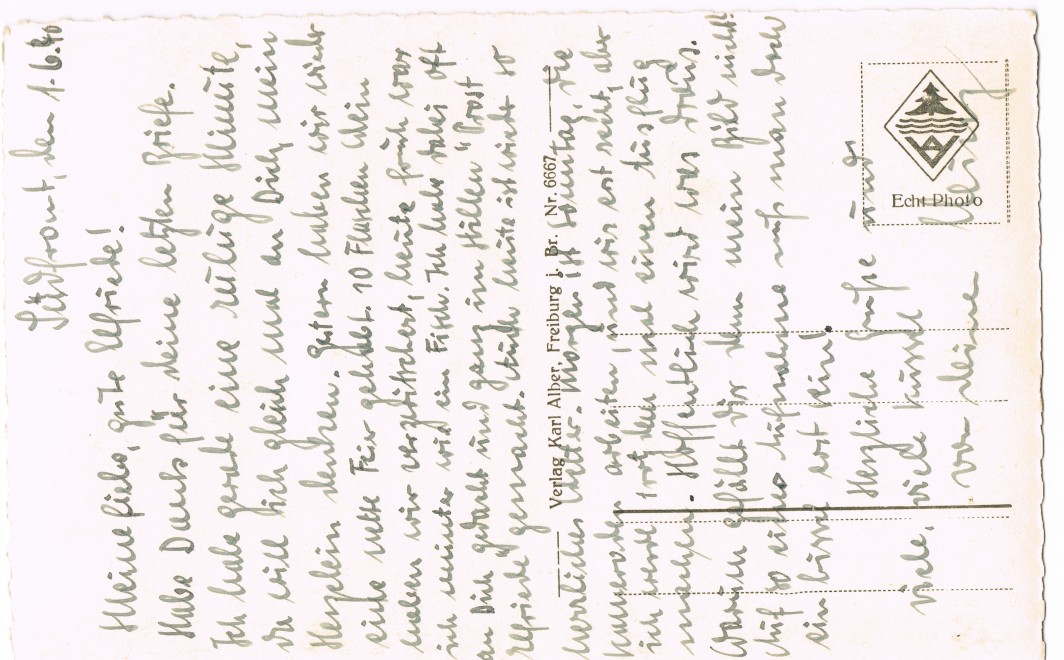 Südfront, den 1.6.40
Meine liebe, gute Elfriede!
Habe Dank für deine letzten Briefe.
Ich habe gerade eine ruhige Minute,
da will ich gleich mal an Dich, mein
Herzlein denken. Gestern haben wir wieder
eine nette Feier gehabt. 10 Flaschen Wein
haben wir verzwitschert, heute früh war
ich munter wie ein Fisch. Ich habe dabei oft
an Dich gedacht und ganz im stillen "Prost
Elfriede" gemacht. Auch heute ist wieder so
herrliches Wetter. Morgen ist Sonntag, die
Kameraden arbeiten und wir erst recht, aber
ich werde trotzdem mal einen Ausflug
machen. Hoffentlich wird was draus.
Warum gefällt dir denn mein Bild nicht?
Auf so einer Aufnahme muß man doch
ein bissel ernst sein!
Herzliche Grüße und
viele, viele Küssel
von Deinem
Verlag Karl Alber, Freiburg i. Br. Nr. 6667
Echt Photo